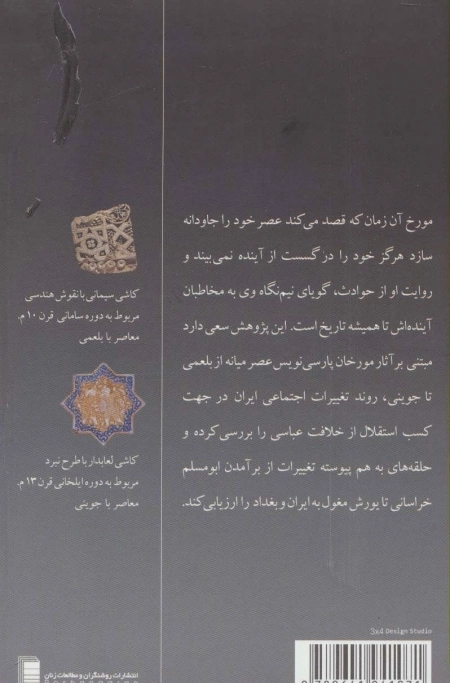 مورخ آن زمان که قصد می‌کند عصر خود را جاودانه
سازد هرگز خود را در گسست از آینده نمی‌بیند و
روایت او از حوادث، گویای نیم‌نگاه وی به مخاطبان
آینده‌اش تا همیشه تاریخ است. این پژوهش سعی دارد
مبتنی بر آثار مورخان پارسی‌نویس عصر میانه از بلعمی
تا جوینی، روند تغییرات اجتماعی ایران در جهت
کسب استقلال از خلافت عباسی را بررسی کرده و
حلقه‌های به هم پیوسته تغییرات از برآمدن ابومسلم
خراسانی تا یورش مغول به ایران و بغداد را ارزیابی کند.
کاشی سیمانی با نقوش هندسی
مربوط به دوره سامانی قرن ۱۰ م.
معاصر با بلعمی
کاشی لعابدار با طرح نبرد
مربوط به دوره ایلخانی قرن ۱۳ م.
معاصر با جوینی
3x4 Design Studio
انتشارات روشنگران و مطالعات زنان